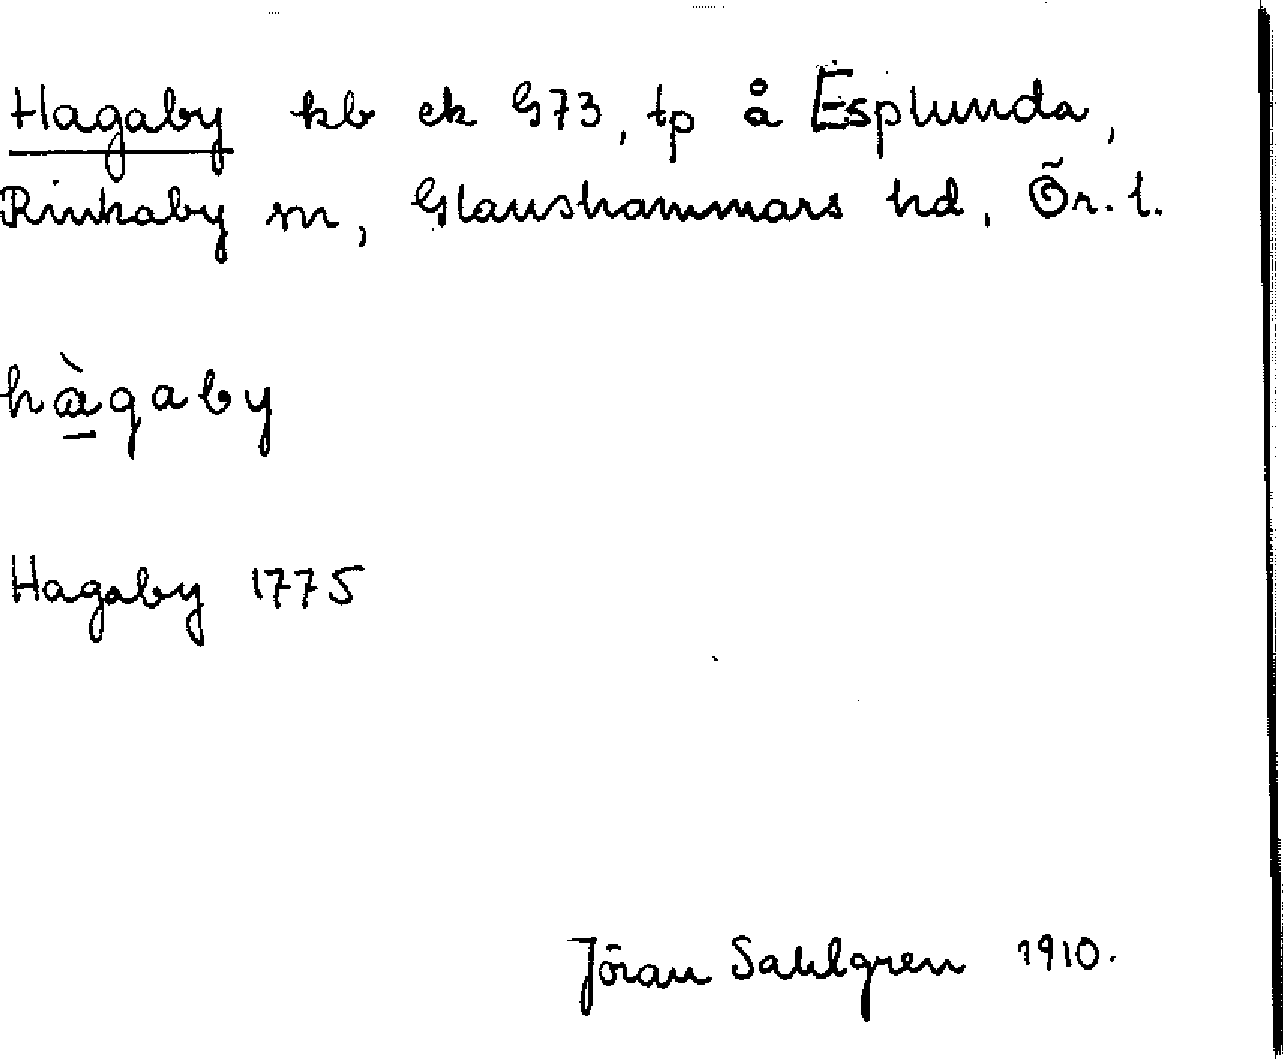 Hagaby kb ek G73, tp å Esplunda,
Rinkaby sn, Glanshammars hd, Ör. l.
hàgaby
Hagaby 1775
Jöran Sahlgren 1910.